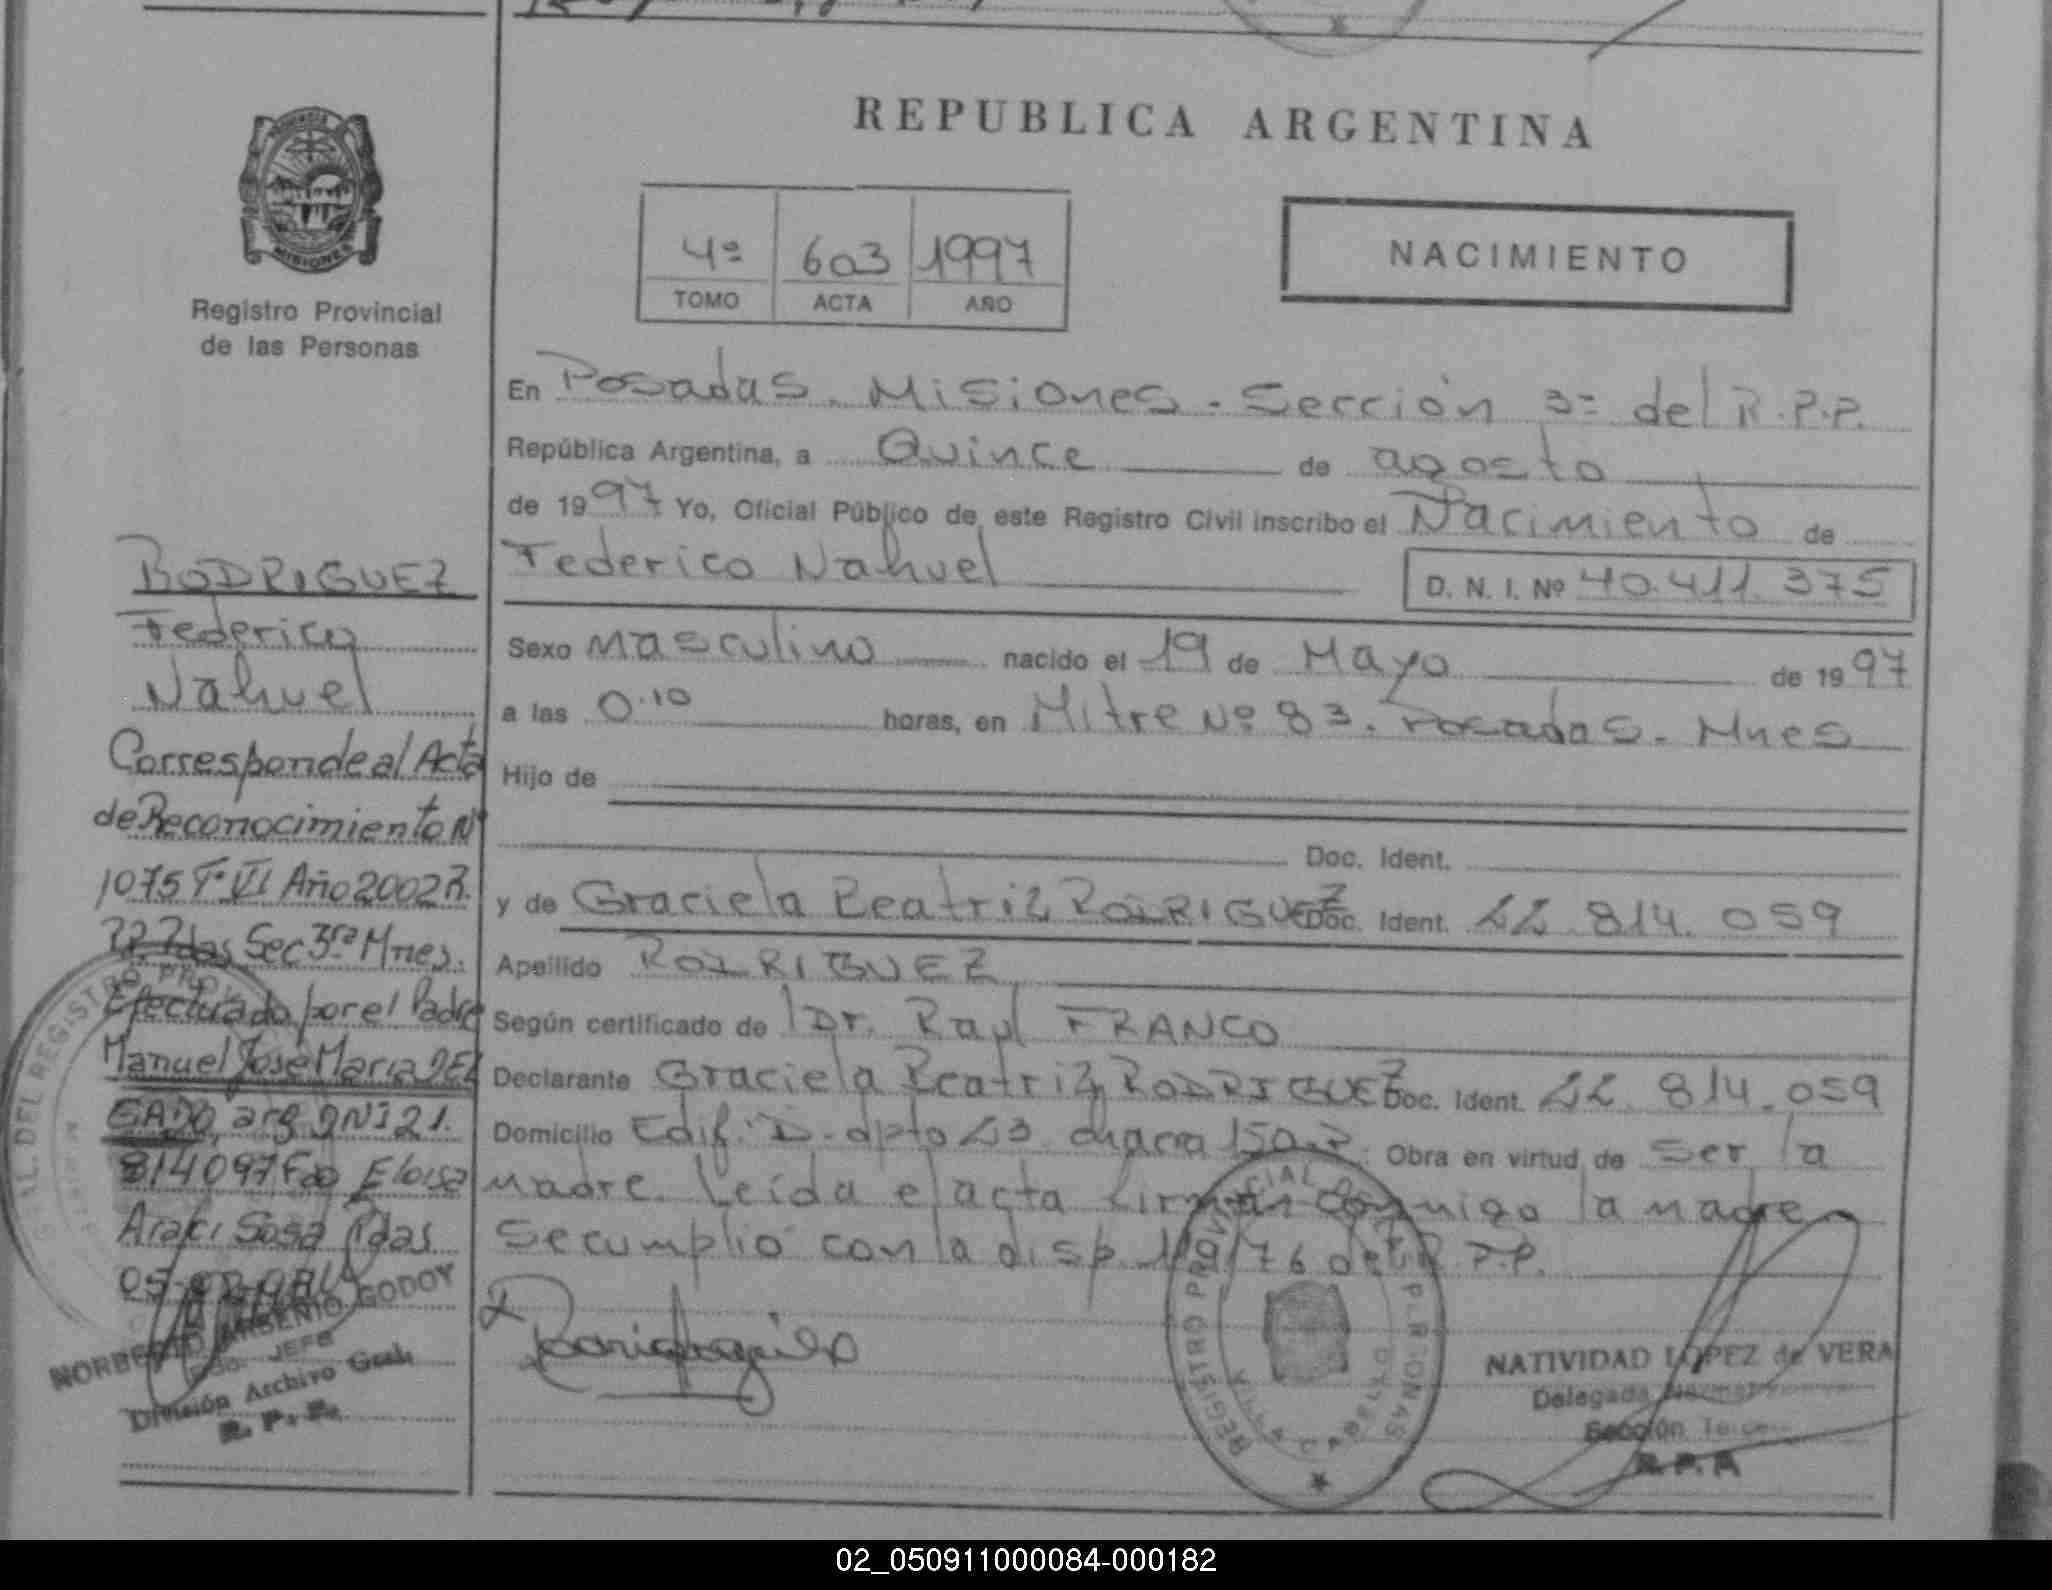 REPUBLICA ARGENTINA
MISIONES
Registro Provincial
de las Personas
4º 603 1997
TOMO ACTA AÑO
NACIMIENTO
En Posadas. Misiones. Sección 3ª del R.P.P.
República Argentina, a Quince de agosto
de 1997 Yo, Oficial Público de este Registro Civil inscribo el Nacimiento de
Federico Nahuel D. N. I. Nº 40.411.375
Sexo Masculino nacido el 19 de Mayo de 1997
a las 0.10 horas, en Mitre Nº 83. Posadas. Mnes
Hijo de
Doc. Ident.
y de Graciela Beatriz RODRIGUEZ Doc. Ident. 22.814.059
Apellido RODRIGUEZ
Según certificado de Dr. Raul FRANCO
Declarante Graciela Beatriz RODRIGUEZ Doc. Ident. 22.814.059
Domicilio Edif. D. dpto 23 chacra 150. Obra en virtud de ser la
madre. Leída el acta firman conmigo la madre
Se cumplió con la disp. 119/76 del R.P.P.
RODRIGUEZ
Federico
Nahuel
Corresponde al Acta
de Reconocimiento Nº
1075 Tº VI Año 2002 R.
P.P. Pdas Sec 3ra Mnes.
Efectuado por el Padre
Manuel José María DEL
GADO, arg DNI 21.
814097 Fdo Eloisa
Sosa Pdas
NORBERTO ARSENIO GODOY
JEFE
División Archivo Gral.
R. P. P.
REGISTRO PROVINCIAL DE LAS PERSONAS
NATIVIDAD LOPEZ de VERA
Delegada
Sección Tercera
R.P.P.
02_050911000084-000182